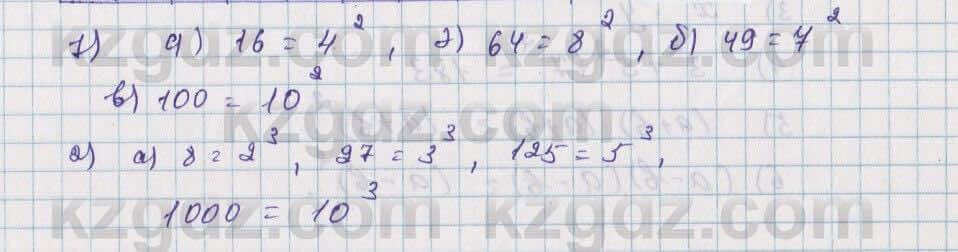 1) а) 16 = 4², г) 64 = 8², б) 49 = 7²
в) 100 = 10²
2) а) 8 = 2³, 27 = 3³, 125 = 5³,
1000 = 10³
kzgdz.com
kzgdz.com
kzgdz.com